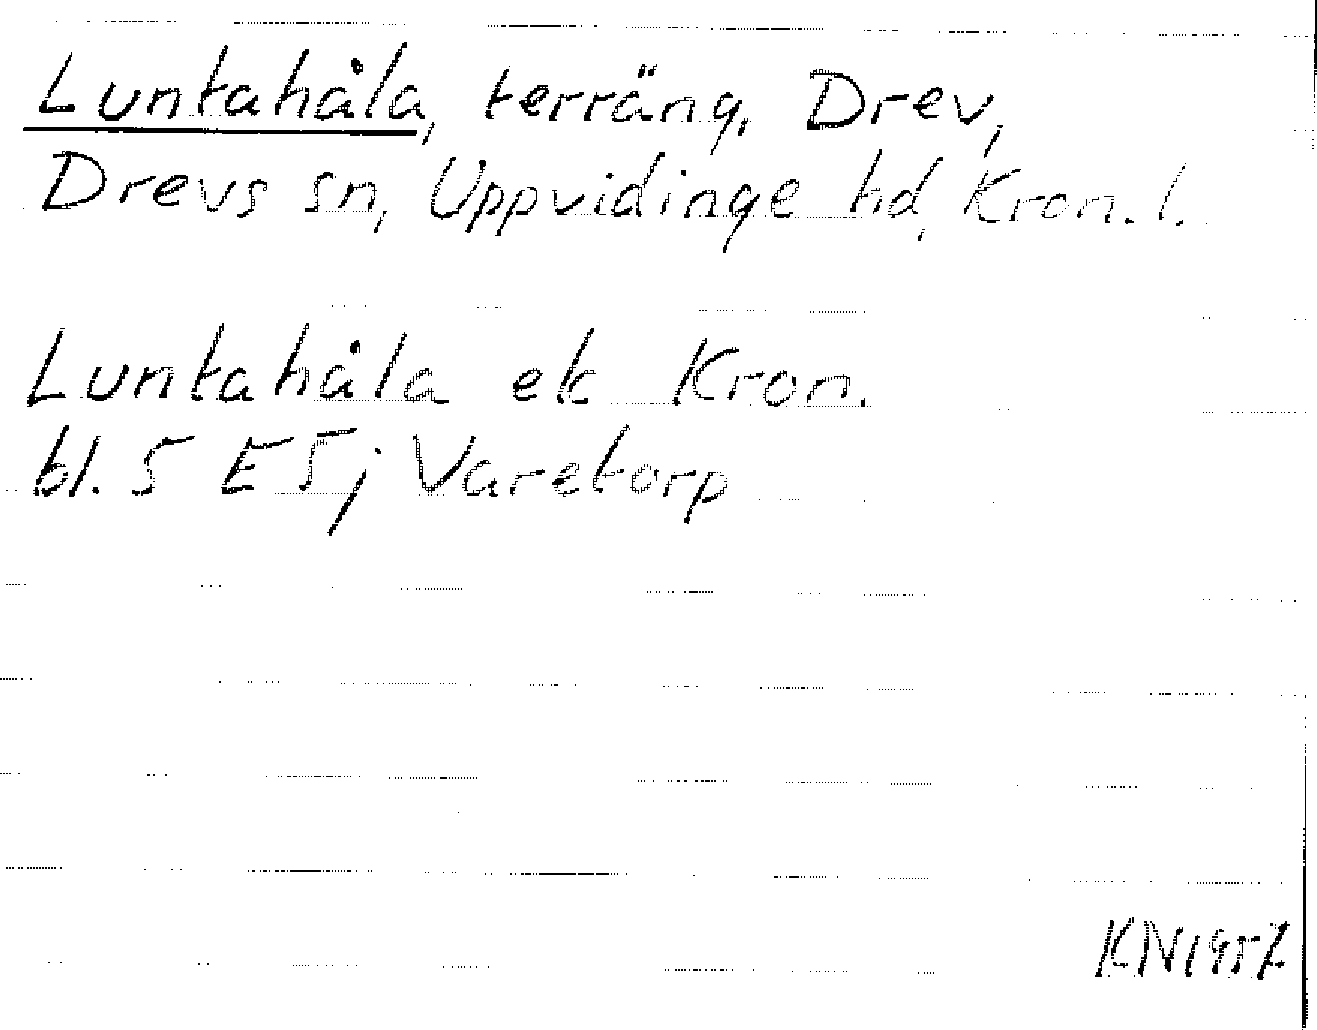 Luntahåla, terräng, Drev,
Drevs sn, Uppvidinge hd, Kron. l.
Luntahåla ek Kron.
bl. 5 E5j Varetorp
KN1957